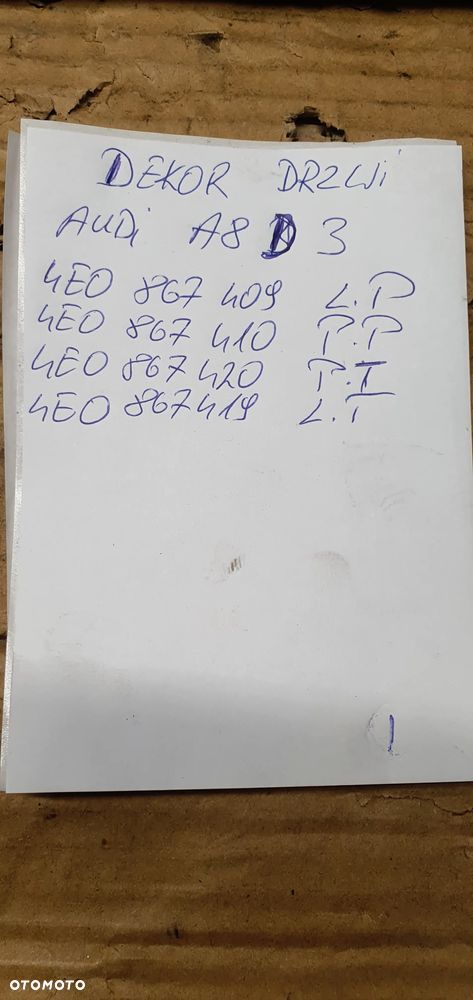 DEKOR DRZWI
AUDI A8 D3
4E0 867 409 L.P
4E0 867 410 P.P
4E0 867 420 P.T
4E0 867 419 L.T
1
OTOMOTO